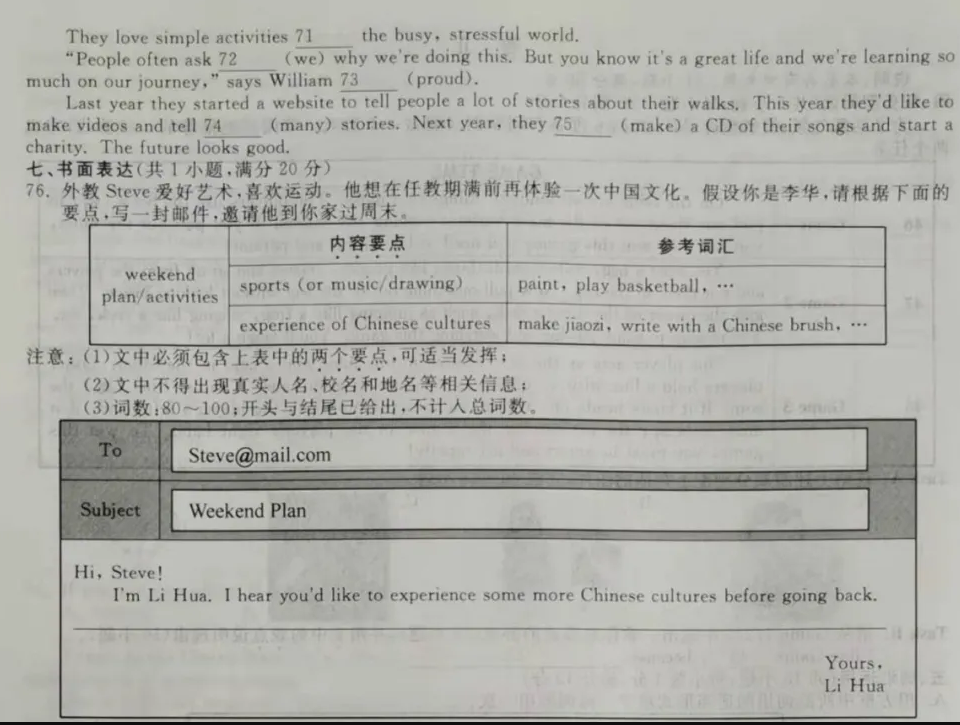 They love simple activities 71 ______ the busy, stressful world.
"People often ask 72 ______ (we) why we're doing this. But you know it's a great life and we're learning so
much on our journey," says William 73 ______ (proud).
Last year they started a website to tell people a lot of stories about their walks. This year they'd like to
make videos and tell 74 ______ (many) stories. Next year, they 75 ______ (make) a CD of their songs and start a
charity. The future looks good.
七、书面表达(共1小题,满分20分)
76. 外教 Steve 爱好艺术,喜欢运动。他想在任教期满前再体验一次中国文化。假设你是李华,请根据下面的
要点,写一封邮件,邀请他到你家过周末。
内容要点 参考词汇
weekend plan/activities
sports (or music/drawing) paint, play basketball, …
experience of Chinese cultures make jiaozi, write with a Chinese brush, …
注意:(1)文中必须包含上表中的两个要点,可适当发挥;
(2)文中不得出现真实人名、校名和地名等相关信息;
(3)词数:80～100;开头与结尾已给出,不计人总词数。
To Steve@mail.com
Subject Weekend Plan
Hi, Steve!
I'm Li Hua. I hear you'd like to experience some more Chinese cultures before going back.
Yours,
Li Hua